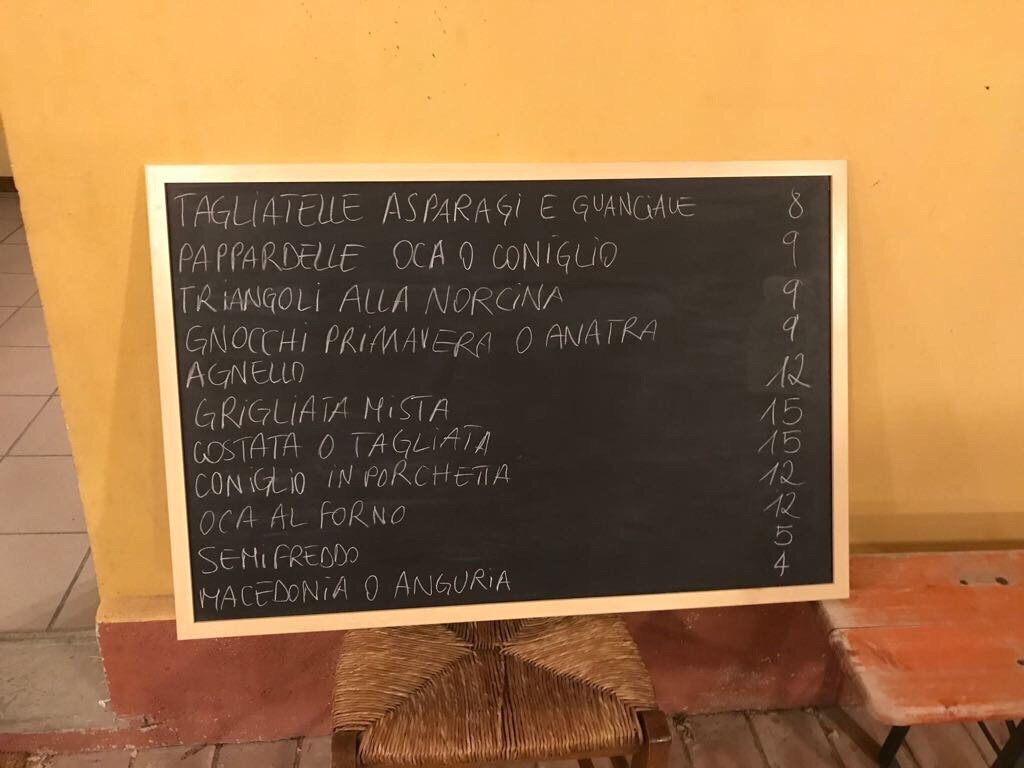 TAGLIATELLE ASPARAGI E GUANCIALE 8
PAPPARDELLE OCA O CONIGLIO 9
TRIANGOLI ALLA NORCINA 9
GNOCCHI PRIMAVERA O ANATRA 9
AGNELLO 12
GRIGLIATA MISTA 15
COSTATA O TAGLIATA 15
CONIGLIO IN PORCHETTA 12
OCA AL FORNO 12
SEMIFREDDO 5
MACEDONIA O ANGURIA 4